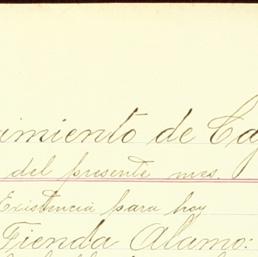 imiento de Ca
del presente mes.
Existencia para hoy
Tienda Alamo: